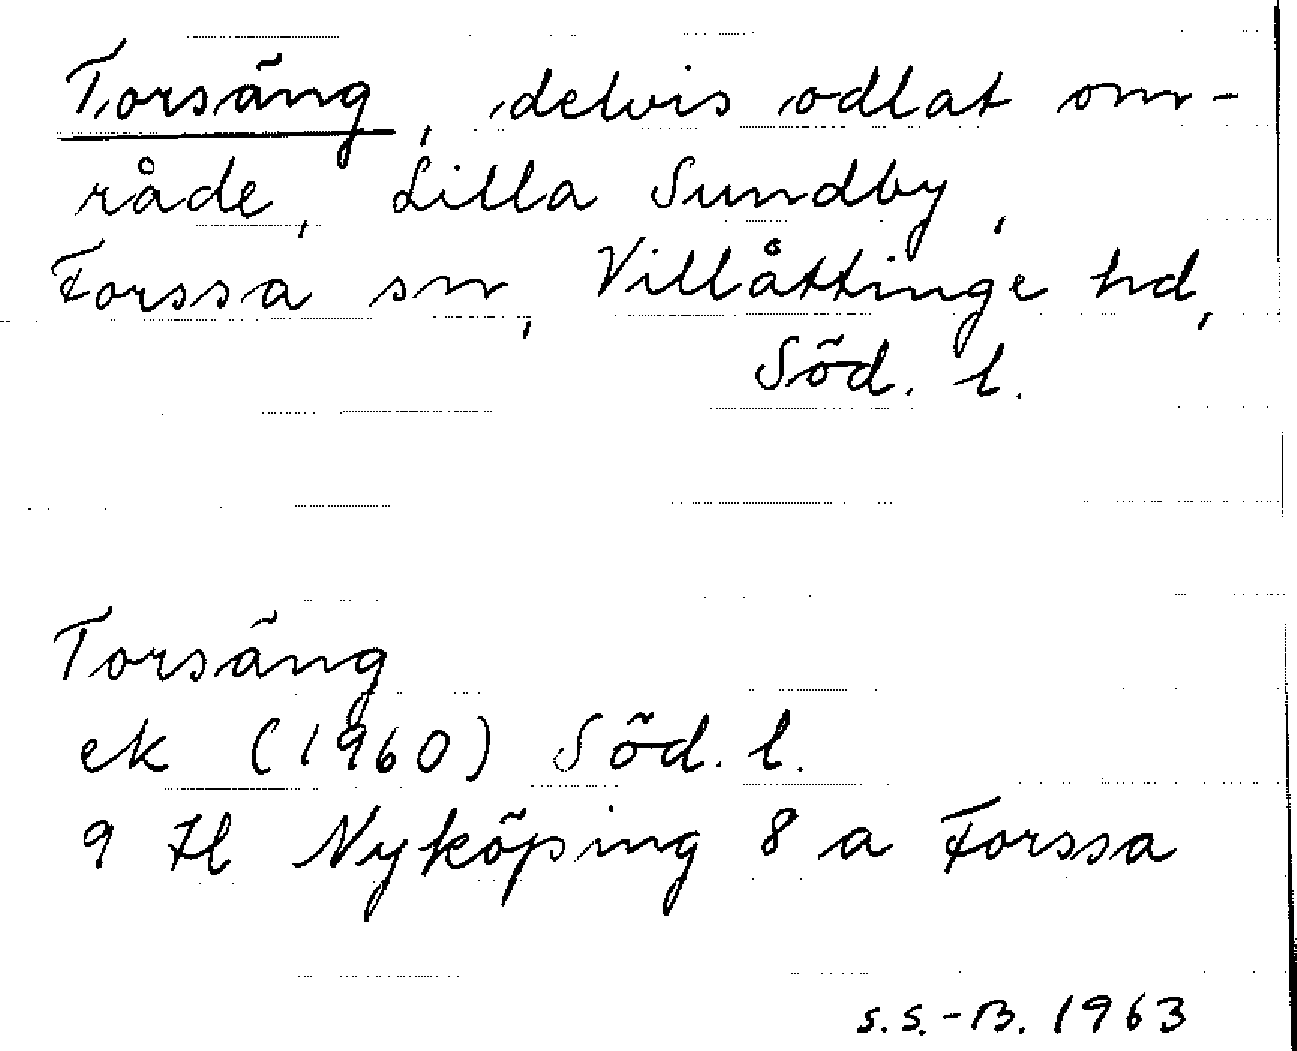 Torsäng, delvis odlat om-
råde, Lilla Sundby,
Forssa sn, Villåttinge hd,
Söd. l.
Torsäng
ek (1960) Söd. l.
9 H Nyköping 8 a Forssa
S.S.-B. 1963